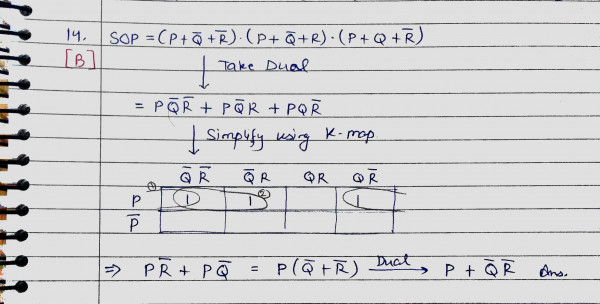 14. SOP = (P + Q̅ + R̅) · (P + Q̅ + R) · (P + Q + R̅)
[B]
↓ Take Dual
= P Q̅ R̅ + P Q̅ R + P Q R̅
↓ Simplify using K-map
Q̅ R̅ Q̅ R QR Q R̅
① P 1 1 ② 1
P̅
⇒ P R̅ + P Q̅ = P(Q̅ + R̅) Dual → P + Q̅ R̅ Ans.